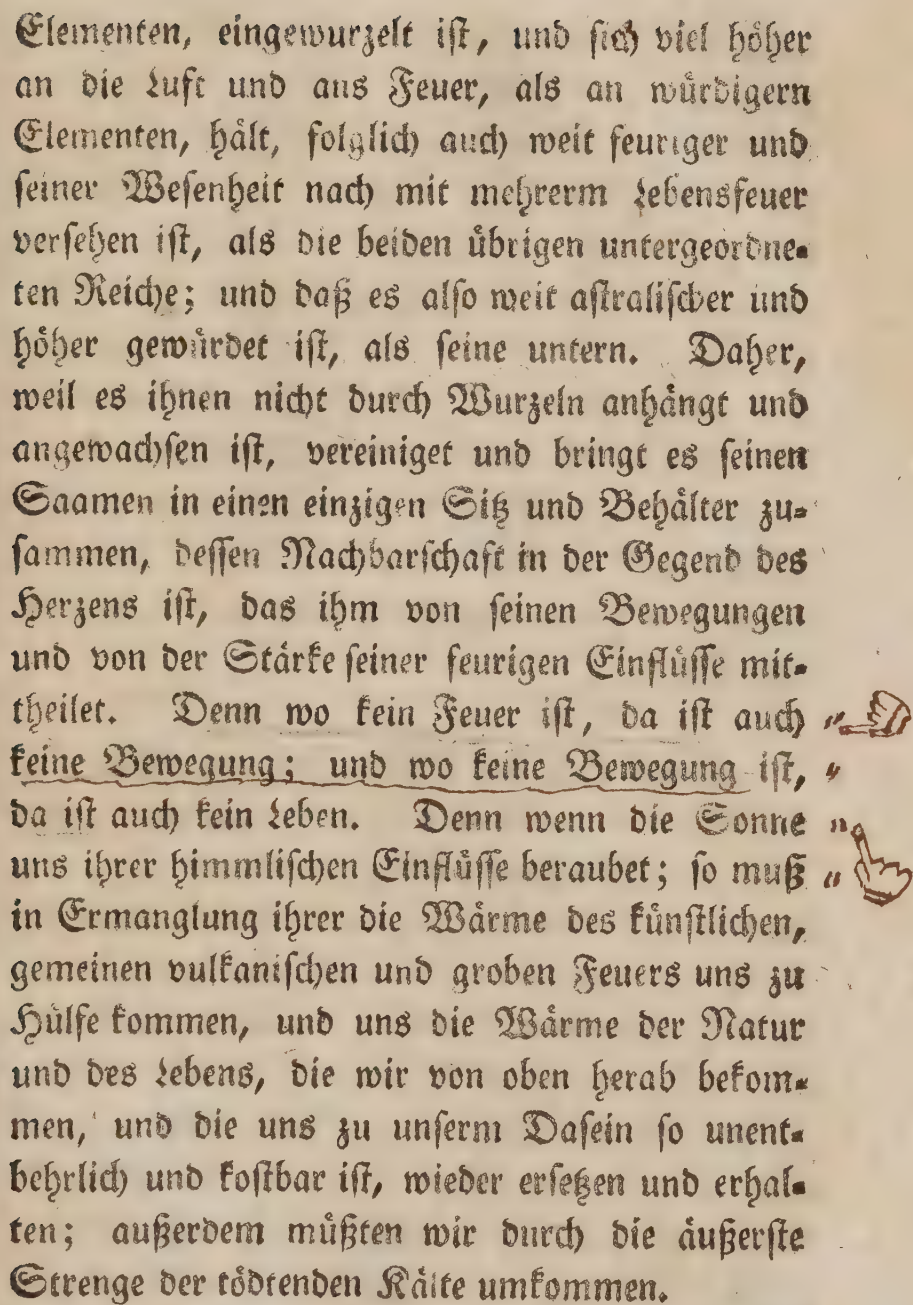 Elementen, eingewurzelt ist, und sich viel höher
an die Luft und ans Feuer, als an würdigern
Elementen, hält, folglich auch weit feuriger und
seiner Wesenheit nach mit mehrerm Lebensfeuer
versehen ist, als die beiden übrigen untergeordne-
ten Reiche; und daß es also weit astralischer und
höher gewürdet ist, als seine untern. Daher,
weil es ihnen nicht durch Wurzeln anhängt und
angewachsen ist, vereiniget und bringt es seinen
Saamen in einen einzigen Sitz und Behälter zu-
sammen, dessen Nachbarschaft in der Gegend des
Herzens ist, das ihm von seinen Bewegungen
und von der Stärke seiner feurigen Einflüsse mit-
theilet. Denn wo kein Feuer ist, da ist auch "
keine Bewegung; und wo keine Bewegung ist, "
da ist auch kein Leben. Denn wenn die Sonne "
uns ihrer himmlischen Einflüsse beraubet; so muß "
in Ermanglung ihrer die Wärme des künstlichen,
gemeinen vulkanischen und groben Feuers uns zu
Hülfe kommen, und uns die Wärme der Natur
und des Lebens, die wir von oben herab bekom-
men, und die uns zu unserm Dasein so unent-
behrlich und kostbar ist, wieder ersetzen und erhal-
ten; außerdem müßten wir durch die äußerste
Strenge der tödtenden Kälte umkommen.